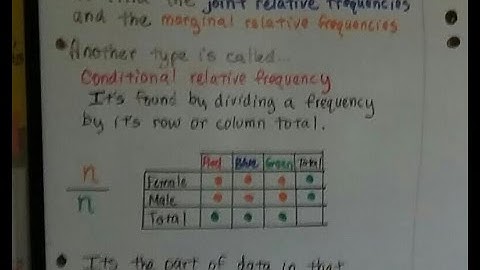 the joint relative frequencies
and the marginal relative frequencies
• Another type is called...
Conditional relative frequency
It's found by dividing a frequency
by it's row or column total.
n
n
Red Blue Green Total
Female
Male
Total
• It's the part of data in that